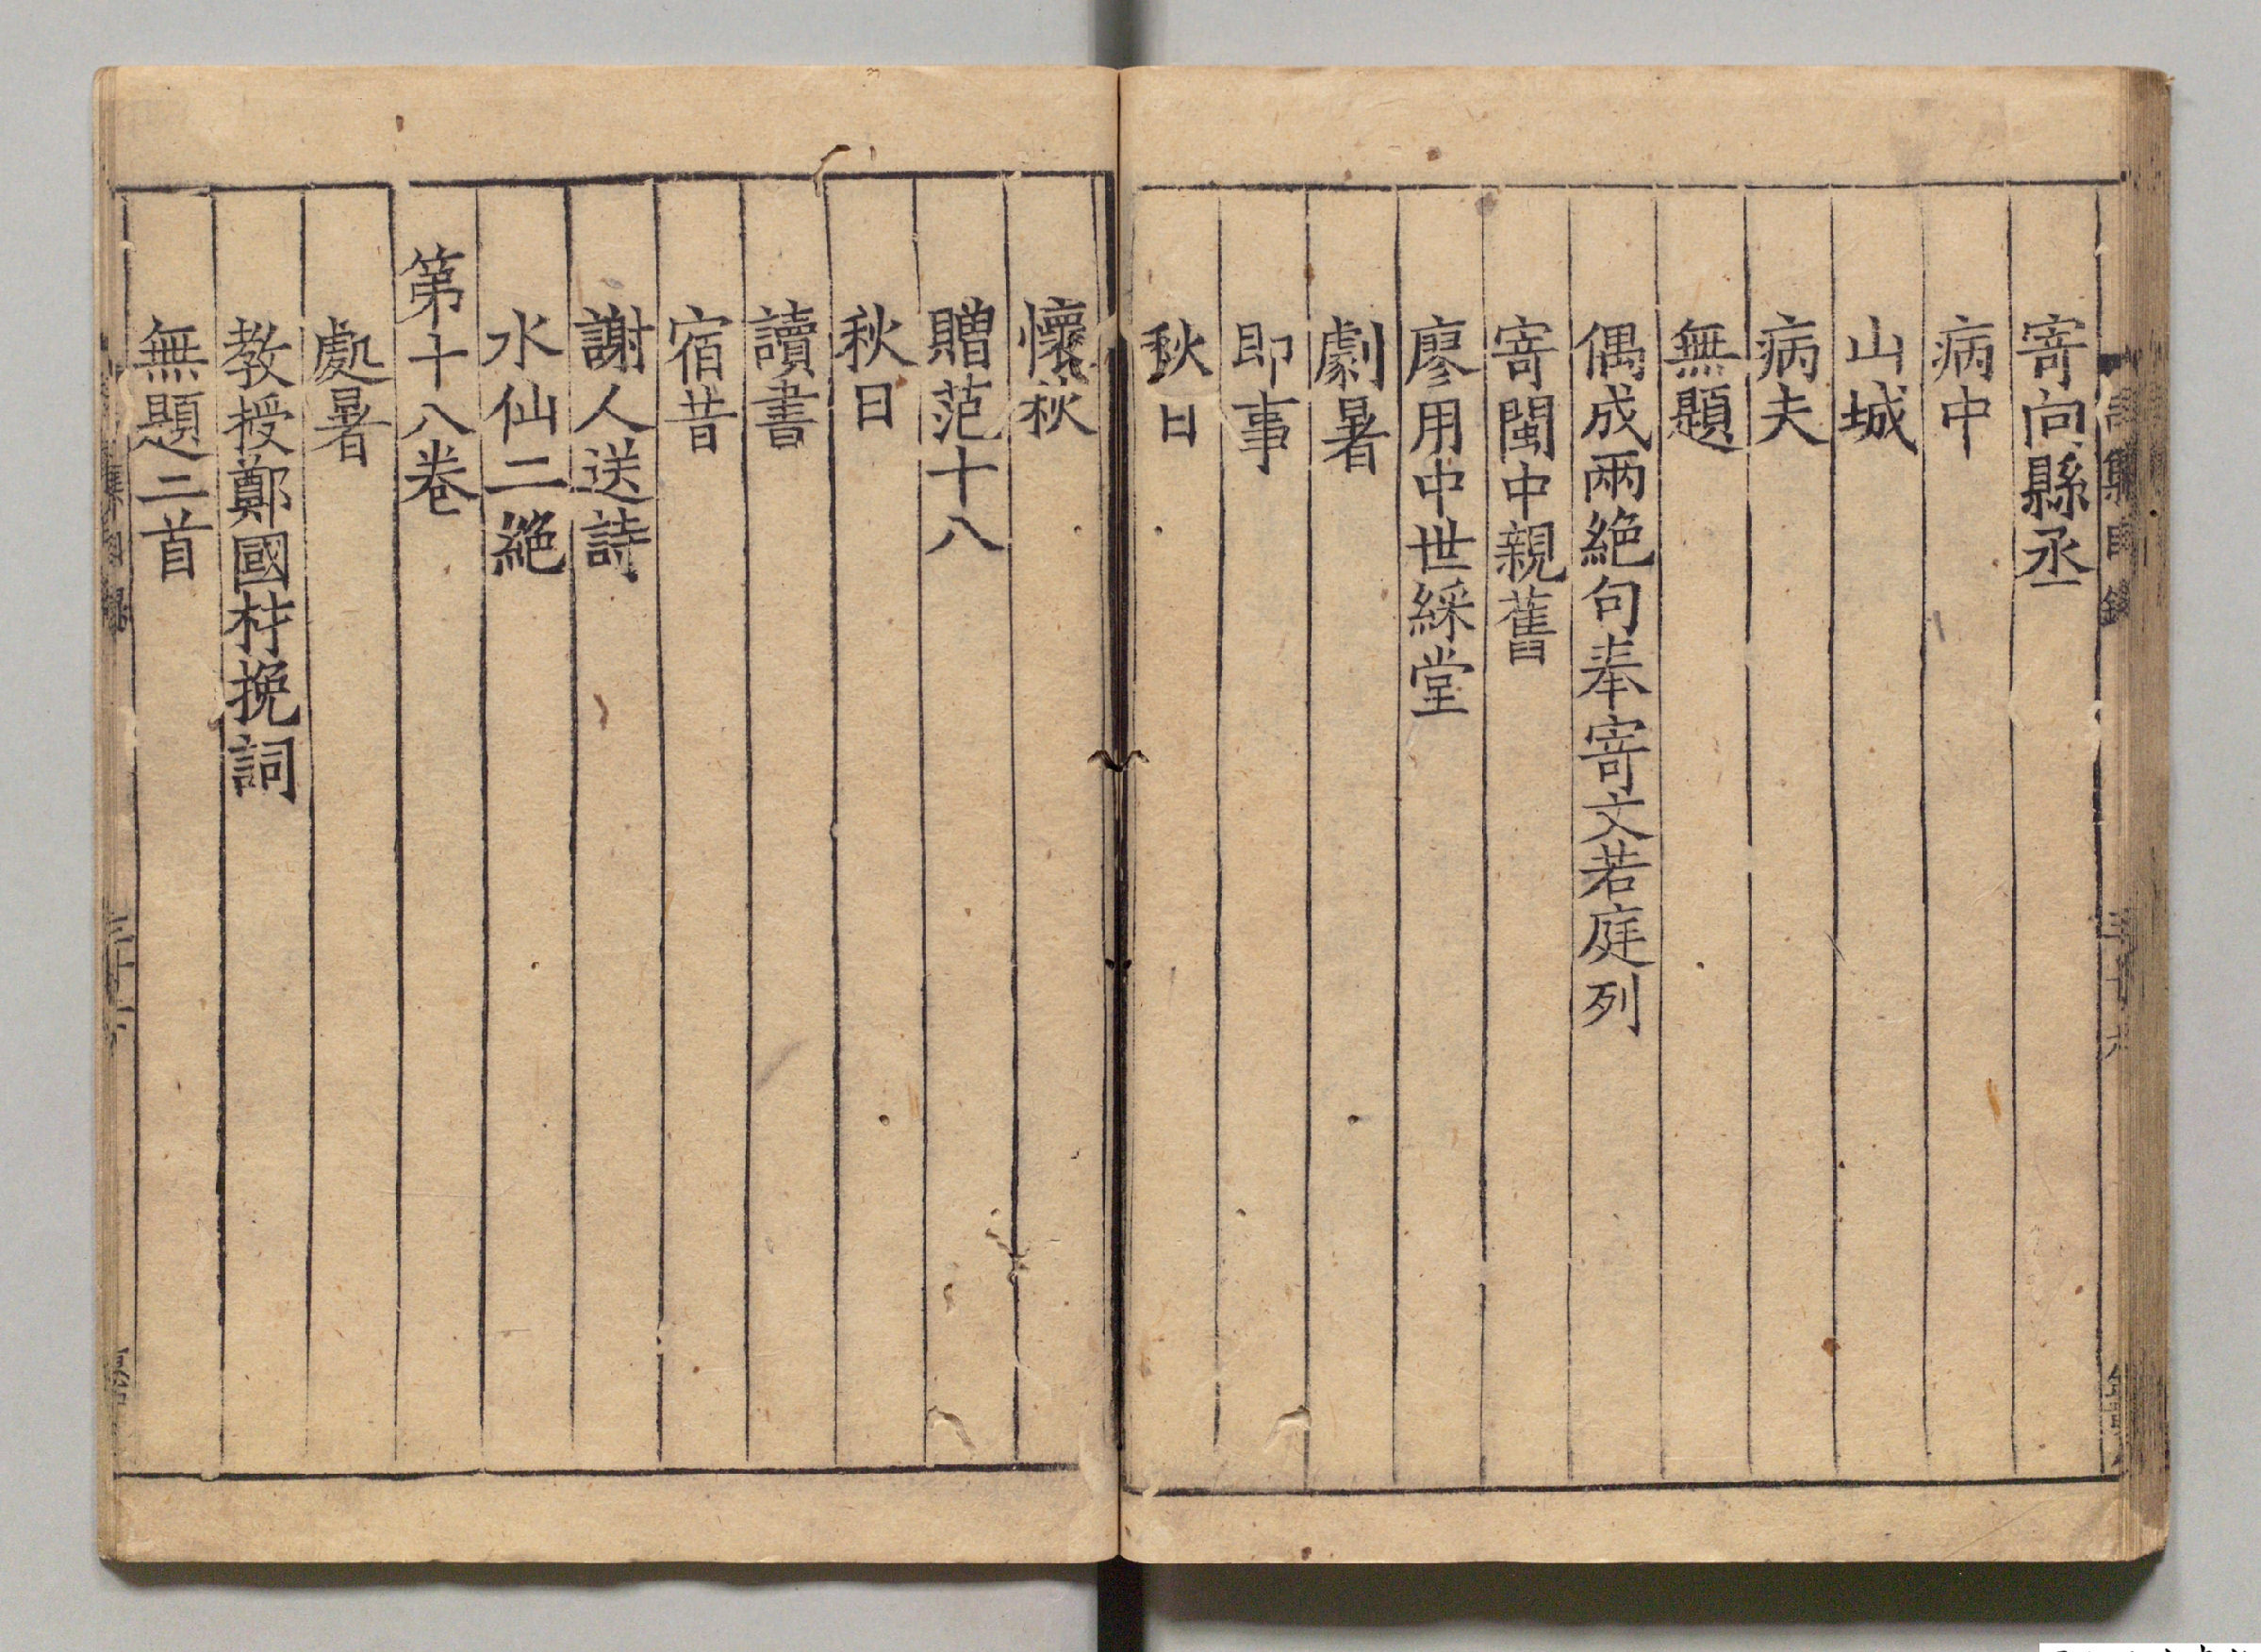 寄向縣丞
病中
山城
病夫
無題
偶成兩絶句奉寄文若庭列
寄閩中親舊
廖用中世綵堂
劇暑
即事
秋日
懷秋
贈范十八
秋日
讀書
宿昔
謝人送詩
水仙二絶
第十八卷
處暑
教授鄭國材挽詞
無題二首